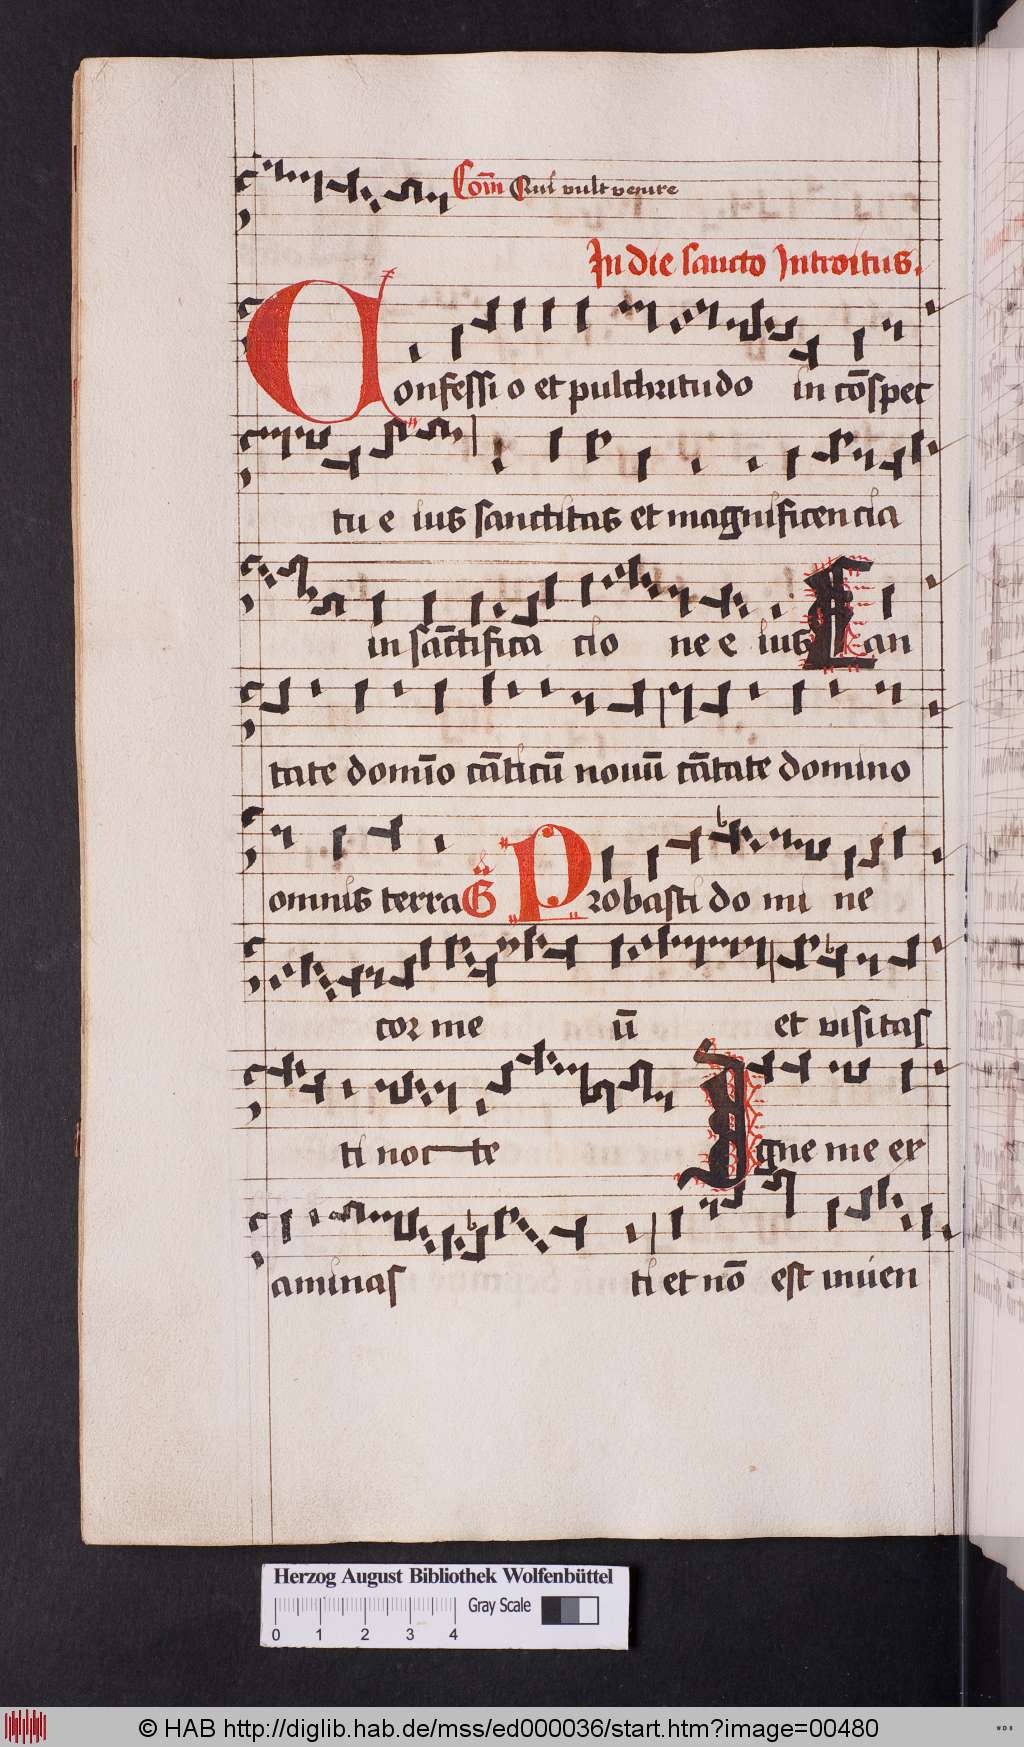 Com̄ Qui vult venire
In die sancto Introitus.
Confessi o et pulchritudo in cōspec
tu e ius sanctitas et magnificen cia
in sāctifica cio ne e ius Can
tate domīo cāticū nouū cātate domino
omnis terra G Probasti do mi ne
cor me ū et visitas
ti nocte Igne me ex
aminas ti et nō est inuen
Herzog August Bibliothek Wolfenbüttel
Gray Scale
0 1 2 3 4
© HAB http://diglib.hab.de/mss/ed000036/start.htm?image=00480